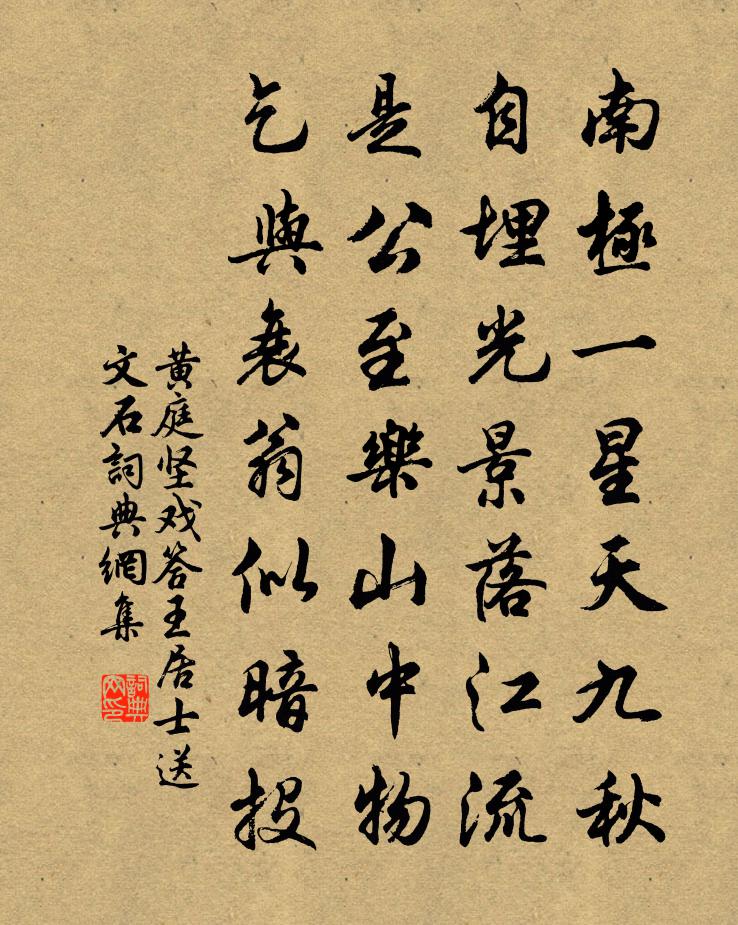 南極一星天九秋
自埋光景落江流
是公至樂山中物
乞與衰翁似暗投
黄庭坚戏答王居士送
文石詞典網集
詞典
文印